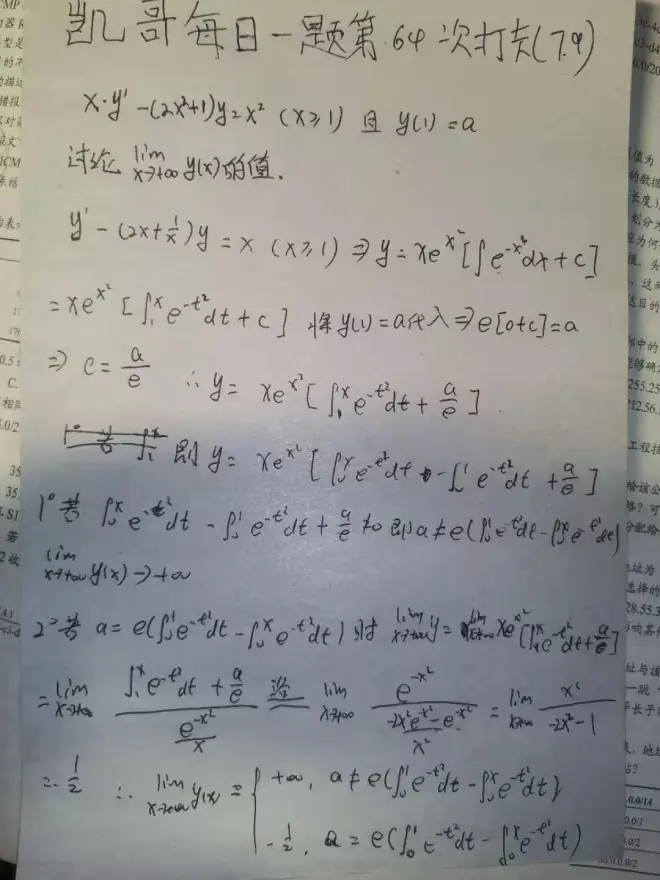 凯哥每日一题第64次打卡(7.9)
x·y′-(2x²+1)y=x² (x≥1) 且 y(1)=a
讨论 lim x→+∞ y(x)的值.
y′-(2x+1/x)y=x (x≥1) ⇒ y=xe^{x²}[∫e^{-x²}dx+c]
=xe^{x²}[∫₁ˣe^{-t²}dt+c] 将y(1)=a代入⇒e[0+c]=a
⇒ c=a/e ∴ y= xe^{x²}[∫₁ˣe^{-t²}dt+a/e]
即 y= xe^{x²}[∫₀ˣe^{-t²}dt-∫₀¹e^{-t²}dt+a/e]
1°若 ∫₀ˣe^{-t²}dt-∫₀¹e^{-t²}dt+a/e≠0 即a≠e(∫₀¹e^{-t²}dt-∫₀ˣe^{-t²}dt)
lim x→+∞ y(x)→+∞
2°若 a=e(∫₀¹e^{-t²}dt-∫₀ˣe^{-t²}dt)时 lim x→+∞ y= lim x→+∞ xe^{x²}[∫₁ˣe^{-t²}dt+a/e]
=lim x→+∞ (∫₁ˣe^{-t²}dt+a/e)/(e^{-x²}/x) 洛 lim x→+∞ e^{-x²}/((-2x²e^{-x²}-e^{-x²})/x²) = lim x→+∞ x²/(-2x²-1)
=-1/2 ∴ lim x→+∞ y(x)= { +∞, a≠e(∫₀¹e^{-t²}dt-∫₀ˣe^{-t²}dt)
-1/2, a=e(∫₀¹e^{-t²}dt-∫₀ˣe^{-t²}dt)